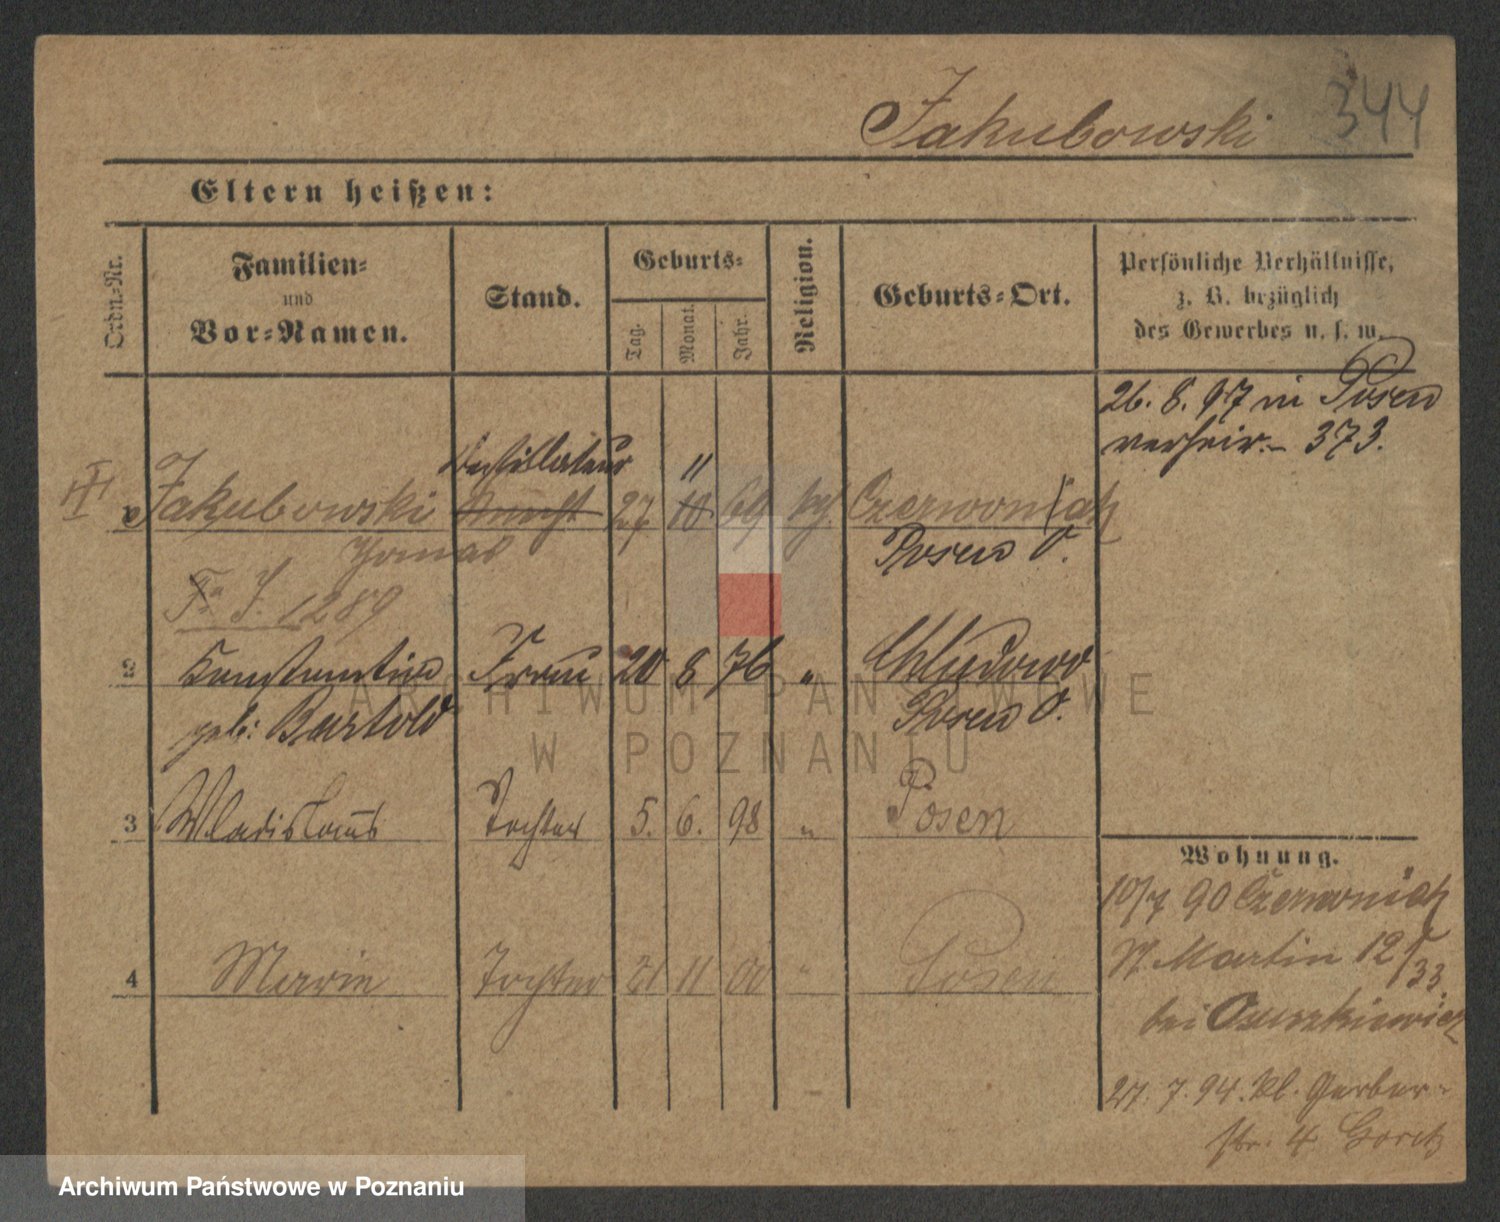 Jakubowski 344
Eltern heißen:
Ordn.-Nr.
Familien-
und
Vor-Namen.
Stand.
Geburts-
Tag.
Monat.
Jahr.
Religion.
Geburts-Ort.
Persönliche Verhältnisse,
z. B. bezüglich
des Gewerbes u. s. w.
26. 8. 97 in Posen
verheir. 373.
Destillateur 11
III Jakubowski Knecht 27 10 69 kath. Czerwonak
Thomas Posen O.
Fa J. 1289
2 Konstantia Frau 20 8 76 " Chludowo
geb: Bartold Posen O.
3 Wladislaus Tochter 5. 6. 98 " Posen
4 Marie Tochter 21 11 00 " Posen
Wohnung.
10/7 90 Czerwonak
St Martin 12
/33.
bei
27. 7. 94. kl. Gerber-
str. 4
ARCHIWUM PAŃSTWOWE
W POZNANIU
Archiwum Państwowe w Poznaniu